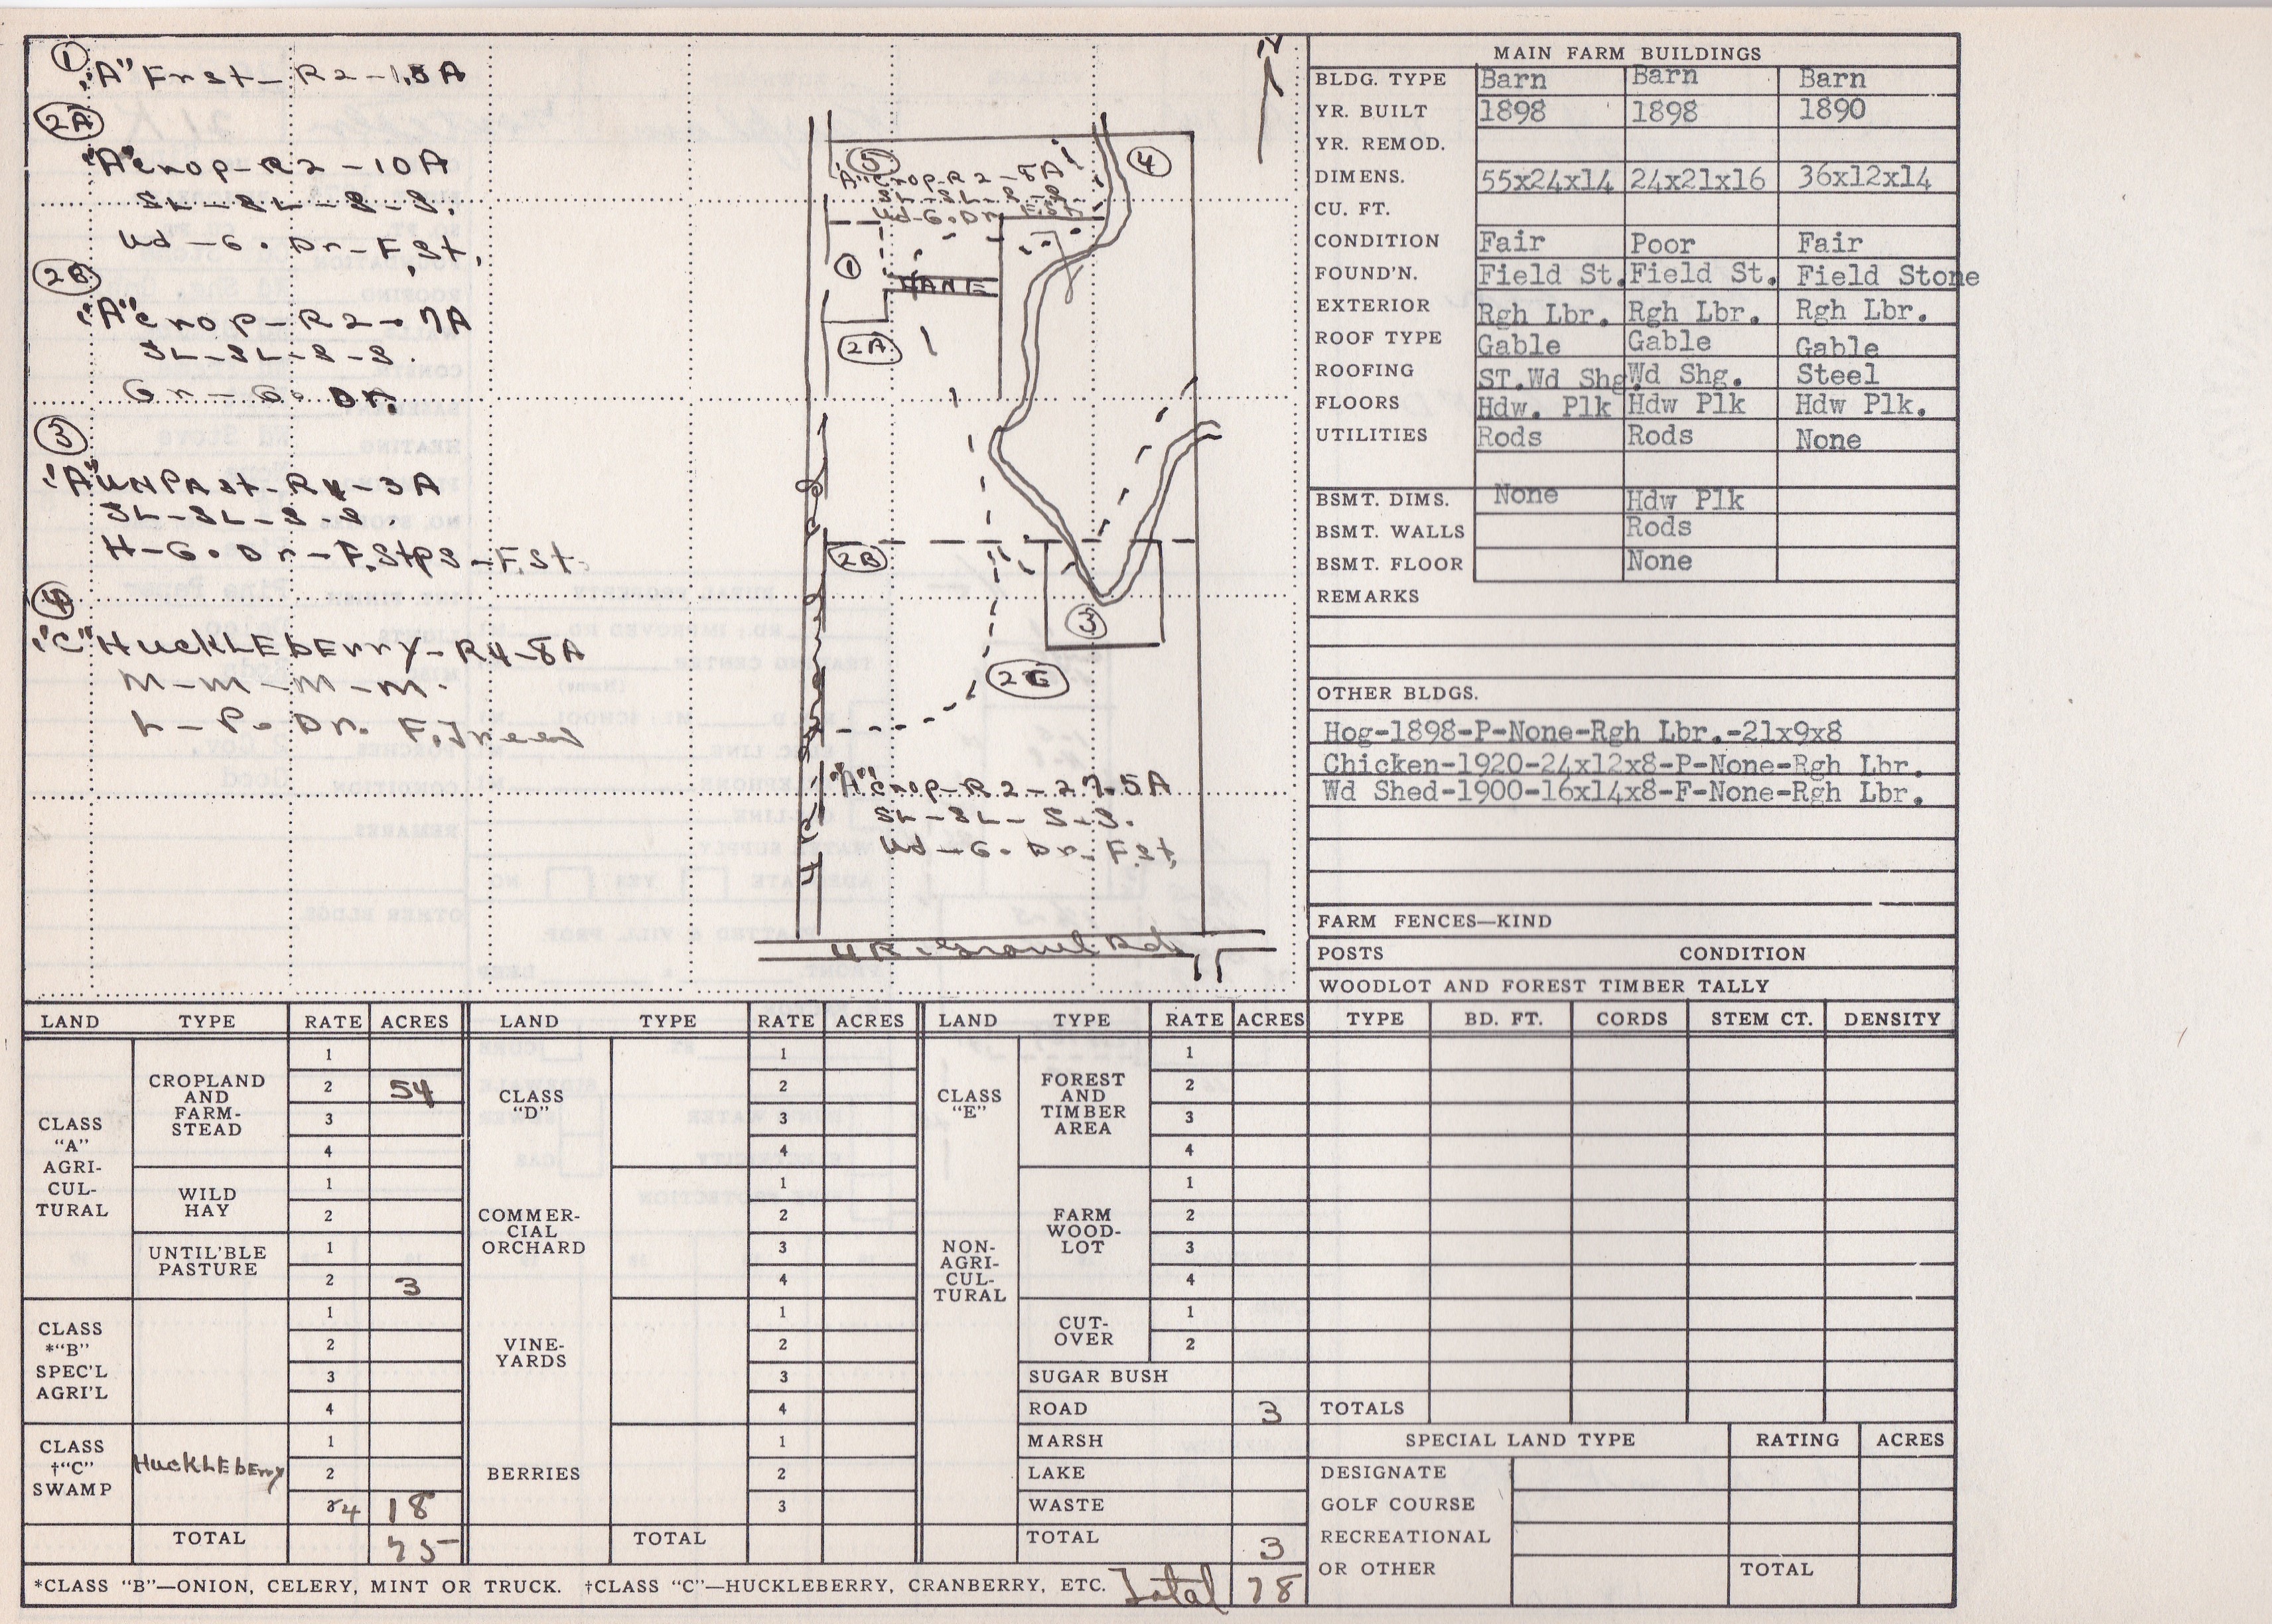 ①
"A" Frst-R2-1.5A
2A
"A" crop-R2-10A
SL-SL-S-S.
Ud-G. Dr-F.St.
2B
"A" crop-R2-7A
SL-SL-S-S.
Gr-G. Dr.
③
"A" UNPAst-R4-3A
SL-SL-S-S.
H-G. Dr-F.Stps-F.St.
④
"C" HuckLEbErry-R4-8A
M-M-M-M.
L-P. Dr.
N
⑤
④
"A" crop-R2-8A
SL-SL-S-S.
Ud-G. Dr F.St.
①
LANE
2A
2B
③
2C
"A" crop-R2-27.5A
SL-SL-S-S.
Ud-G. Dr-F.St.
4R. Gravel Rd.
MAIN FARM BUILDINGS
BLDG. TYPE Barn Barn Barn
YR. BUILT 1898 1898 1890
YR. REMOD.
DIMENS. 55x24x14 24x21x16 36x12x14
CU. FT.
CONDITION Fair Poor Fair
FOUND'N. Field St. Field St. Field Stone
EXTERIOR Rgh Lbr. Rgh Lbr. Rgh Lbr.
ROOF TYPE Gable Gable Gable
ROOFING ST.Wd Shg. Wd Shg. Steel
FLOORS Hdw. Plk Hdw Plk Hdw Plk.
UTILITIES Rods Rods None
BSMT. DIMS. None Hdw Plk
BSMT. WALLS Rods
BSMT. FLOOR None
REMARKS
OTHER BLDGS.
Hog-1898-P-None-Rgh Lbr.-21x9x8
Chicken-1920-24x12x8-P-None-Rgh Lbr.
Wd Shed-1900-16x14x8-F-None-Rgh Lbr.
FARM FENCES—KIND
POSTS CONDITION
WOODLOT AND FOREST TIMBER TALLY
TYPE BD. FT. CORDS STEM CT. DENSITY
TOTALS
SPECIAL LAND TYPE RATING ACRES
DESIGNATE
GOLF COURSE
RECREATIONAL
OR OTHER TOTAL
LAND TYPE RATE ACRES
CLASS
"A"
AGRI-
CUL-
TURAL
CROPLAND
AND
FARM-
STEAD
1
2 54
3
4
WILD
HAY
1
2
UNTIL'BLE
PASTURE
1
2 3
CLASS
*"B"
SPEC'L
AGRI'L
1
2
3
4
CLASS
†"C"
SWAMP
HuckLEbErry
1
2
3 4 18
TOTAL 75
LAND TYPE RATE ACRES
CLASS
"D"
COMMER-
CIAL
ORCHARD
1
2
3
4
1
2
3
4
VINE-
YARDS
1
2
3
4
BERRIES
1
2
3
TOTAL
LAND TYPE RATE ACRES
CLASS
"E"
NON-
AGRI-
CUL-
TURAL
FOREST
AND
TIMBER
AREA
1
2
3
4
FARM
WOOD-
LOT
1
2
3
4
CUT-
OVER
1
2
SUGAR BUSH
ROAD 3
MARSH
LAKE
WASTE
TOTAL 3
*CLASS "B"—ONION, CELERY, MINT OR TRUCK. †CLASS "C"—HUCKLEBERRY, CRANBERRY, ETC. Total 78